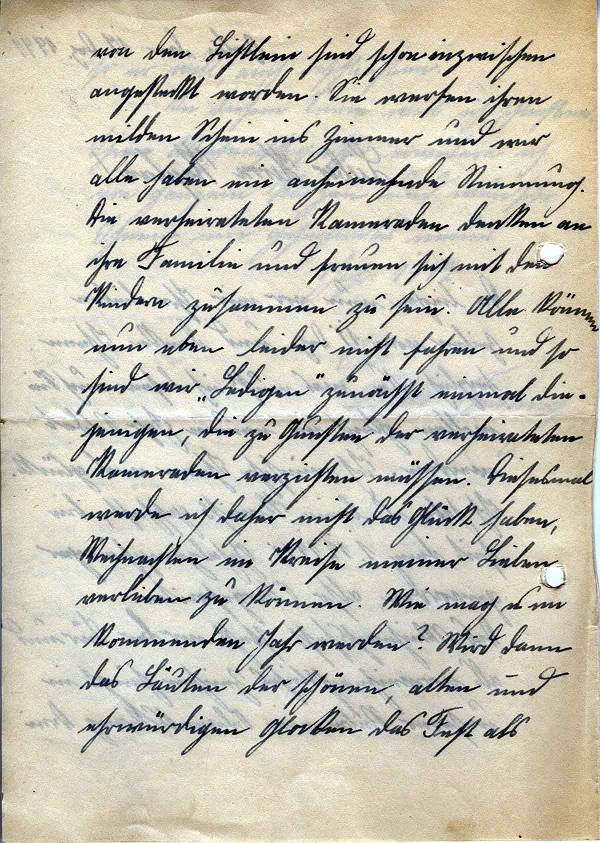 von den Lichtlein sind schon inzwischen
angesteckt worden. Sie werfen ihren
milden Schein ins Zimmer und wir
alle haben eine anheimelnde Stimmung.
Die verheirateten Kameraden denken an
ihre Familie und freuen sich mit den
Kindern zusammen zu sein. Alle können
nun eben leider nicht fahren und so
sind wir „Ledigen“ zunächst einmal die-
jenigen, die zu Gunsten der verheirateten
Kameraden verzichten müssen. Diesesmal
werde ich daher nicht das Glück haben,
Weihnachten im Kreise meiner Lieben
verleben zu können. Wie mag es im
kommenden Jahr werden? Wird dann
das Läuten der schönen, alten und
ehrwürdigen Glocken das Fest als